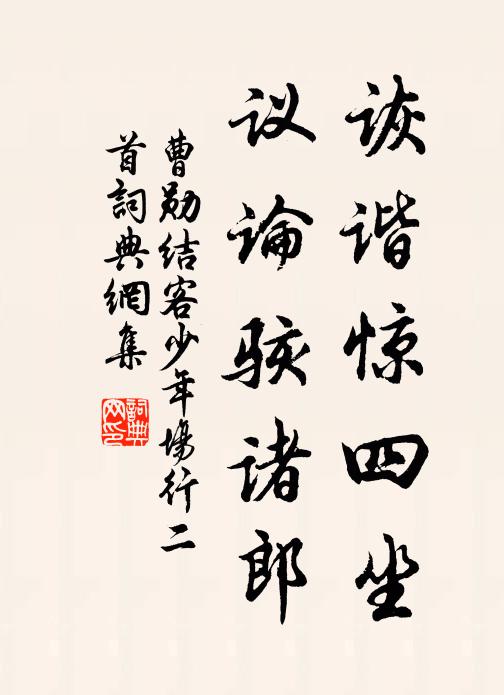 诙谐惊四坐
议论骇诸郎
曹勋结客少年場行二
首詞典網集
詞典
网印